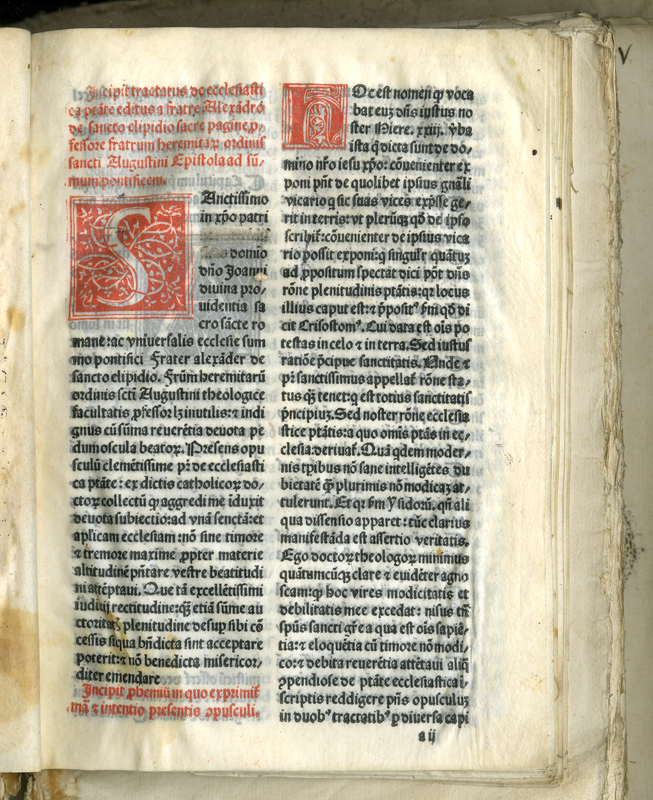 Incipit tractatus de ecclesiasti
ca ptāte editus a fratre Alexādro
de sancto elipidio sacre pagine ꝓ/
fessore fratrum heremitaꝝ ordinis
sancti Augustini Epistola ad sū/
mum pontificem.
SAnctissimo
in xp̄o patri
domino
dn̄o Joanni
diuina pro/
uidentia sa
cro sācte ro
mane: ac vniuersalis ecclesie sum
mo pontifici Frater alexāder de
sancto elipidio. Frūm heremitarū
ordinis scti Augustini theologice
facultatis ꝓfessor lꝫ inutilis: ⁊ indi
gnus cū sūma reuerētia deuota pe
dum oscula beatoꝝ. Presens opu
sculū clemētissime pr̄ de ecclesiasti
ca ptāte: ex dictis catholicoꝝ do/
ctoꝝ collectū ꝙ aggredi me īduxit
deuota subiectio: ad vnā sanctā: et
apl̄icam ecclesiam: nō sine timore
⁊ tremore maxime ꝓpter materie
altitudinē pn̄tare vestre beatitudi
ni attēptaui. Que tā excellētissimi
iudicij rectitudine: ꝙ̄ etiā sūme au
ctoritatꝭ plenitudine desuꝑ sibi cō
cessis siqua bn̄dicta sint acceptare
poterit: ⁊ nō benedicta misericor/
diter emendare
Incipit ꝓhemiū in quo exprimit̄
mā ⁊ intentio presentis opusculi.
HOc est nomen ꝙ voca
bat euꝫ dn̄s iustus no
ster Hiere. xxiij. v̄ba
ista q̄ dicta sunt de do/
mino nr̄o iesu xp̄o: cōuenienter ex
poni pn̄t de quolibet ipsius gn̄ali
vicario q̄ sic suas vices exp̄sse ge/
rit in terris: vt pleruꝫꝙ qd̄ de ipso
scribit̄: cōuenienter de ipsius vica
rio possit exponi: q̄ singulr̄ quātuꝫ
ad ꝓpositum spectat dici pōt dn̄s
rōne plenitudinis ptātis: qꝛ locus
illius caput est: ⁊ p̄posit⁹ ꝑm qd̄ di
cit Crisostom⁹. Cui data est ois po
testas in celo ⁊ in terra. Sed iustus
ratiōe p̄cipue sanctitatis. Unde ⁊
pr̄ sanctissimus appellat̄ rōne sta/
tus quē tenet: q̄ est totius sanctitatis
p̄ncipiuꝫ. Sed noster rōne ecclesia
stice ptātis: a quo omīs ptās in ec/
clesia deriuat̄. Quā qdem moder/
nis tꝑibus nō sane intelligētes du
bietatē ꝙ̄ plurimis nō modicaꝫ at/
tulerunt. Et qꝛ ẜm Ysidorū. qn̄ ali
qua dissensio apparet: tūc clarius
manifestāda est assertio veritatis.
Ego doctoꝝ theologoꝝ minimus
quātumcūꝙ clare ⁊ euidēter agno
scam: ꝙ hoc vires modicitatis et
debilitatis mee excedat: nisus tn̄
sp̄us sancti gr̄e a qua est ois sapiē/
tia: ⁊ eloquētia cū timore nō modi/
co: ⁊ debita reuerētia attētaui aliq̄
ꝯpendiose de ptāte ecclesiastica ī/
scriptis reddigere pn̄s opusculuꝫ
in duob⁹ tractatib⁹ ꝑ diuersa capi
a ij
V